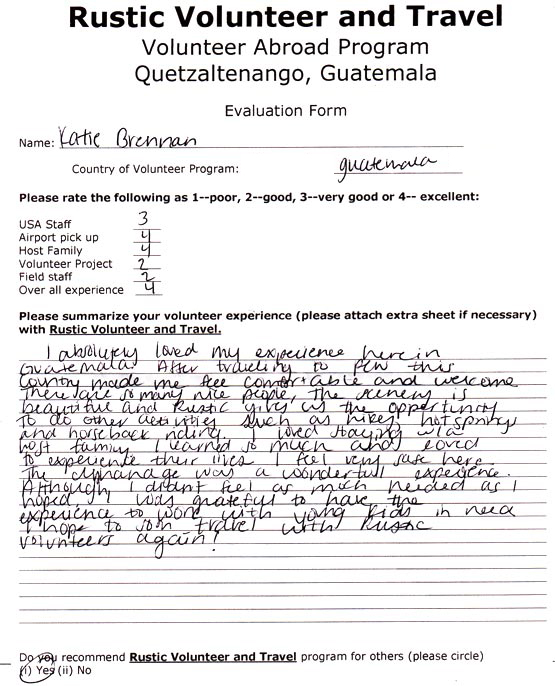 Rustic Volunteer and Travel
Volunteer Abroad Program
Quetzaltenango, Guatemala
Evaluation Form
Name: Katie Brennan
Country of Volunteer Program: guatemala
Please rate the following as 1--poor, 2--good, 3--very good or 4-- excellent:
USA Staff 3
Airport pick up 4
Host Family 4
Volunteer Project 2
Field staff 2
Over all experience 4
Please summarize your volunteer experience (please attach extra sheet if necessary)
with Rustic Volunteer and Travel.
I absolutely loved my experience here in
Guatemala. After traveling to few this
country made me feel comfortable and welcome
There are so many nice people, The scenery is
beautiful and Rustic gives us the opportunity
to do other activities such as hikes, hotsprings
and horseback riding. I loved staying w/a
host family I learned so much and loved
to experience their lives. I feel very safe here.
The orphanage was a wonderful experience.
Although I didnt feel as much needed as I
hoped, I was grateful to have the
experience to work with young kids in need
I hope to soon travel with Rustic
volunteers again!
Do you recommend Rustic Volunteer and Travel program for others (please circle)
(i) Yes (ii) No